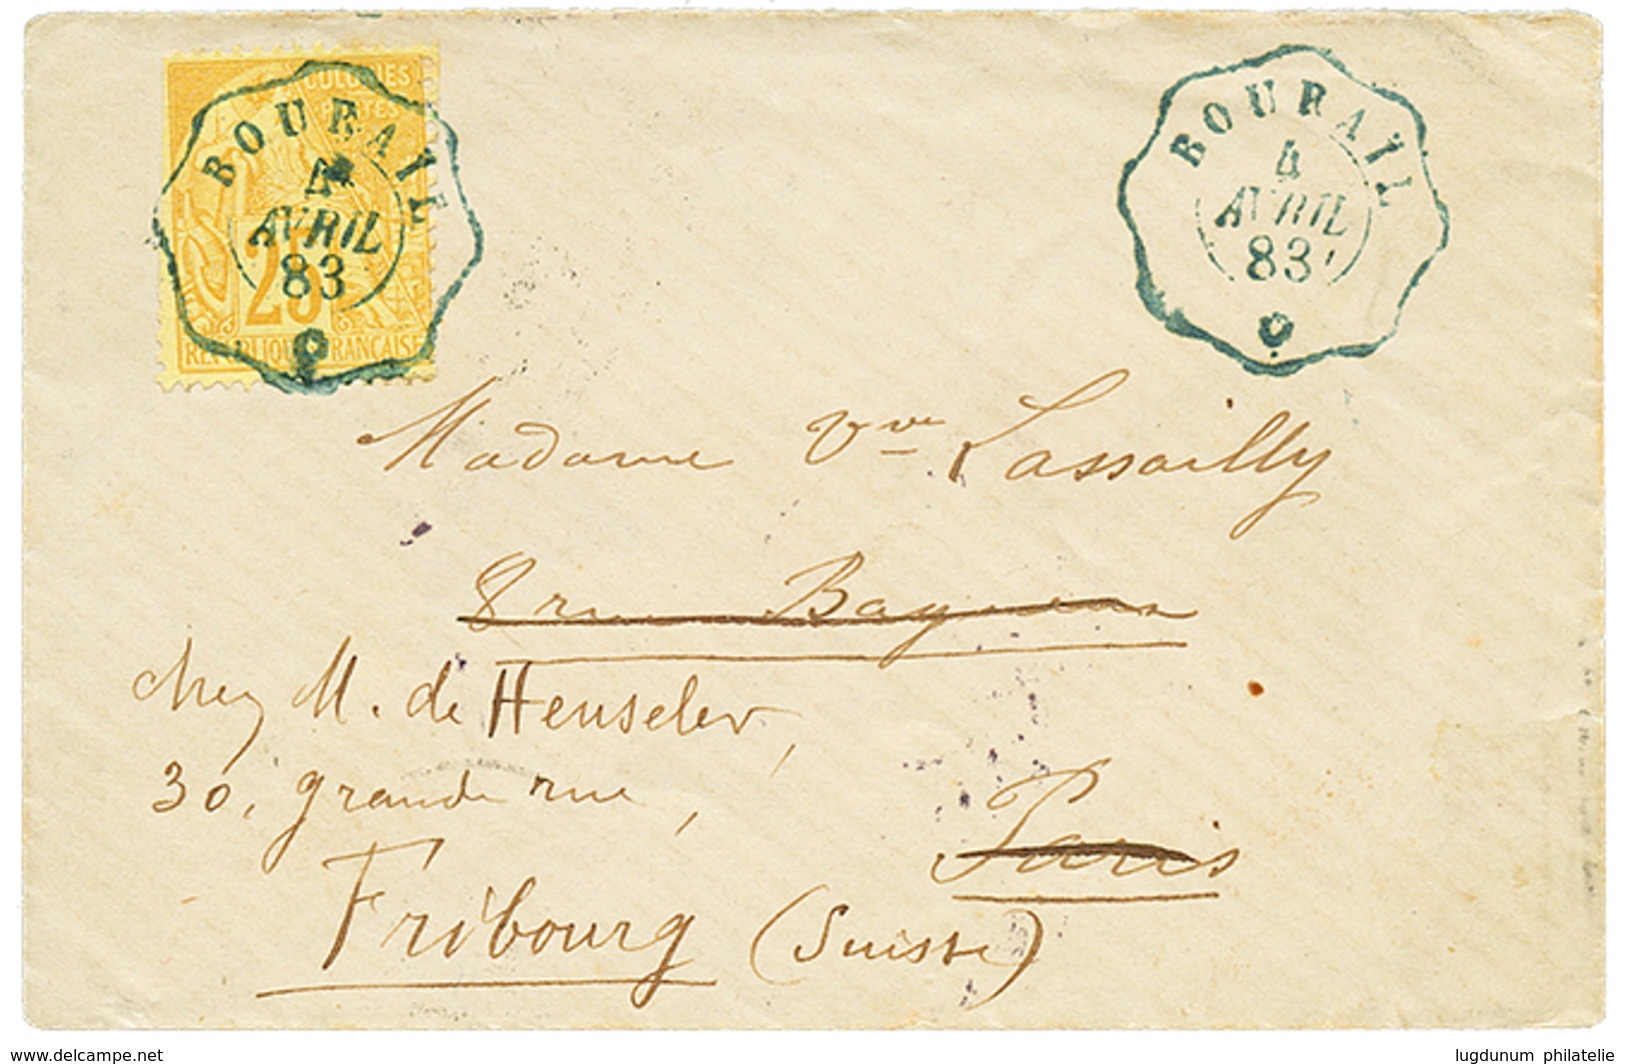 COLONIES
POSTES
25
RÉPUBLIQUE FRANÇAISE
BOURAIL
4
AVRIL
83
BOURAIL
4
AVRIL
83
Madame Vve Lassailly
8 rue
chez M. de Henseler,
30, grande rue,
Paris
Fribourg (Suisse)
www.delcampe.net
lugdunum philatelie